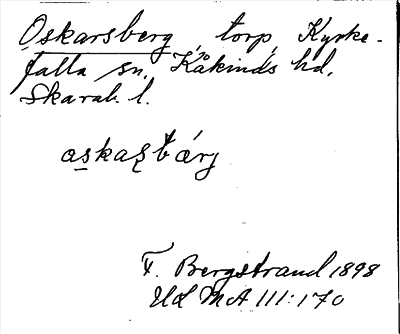 Oskarsberg, torp, Kyrke-
falla sn. Kåkinds hd,
Skarab. l.
askasbärj
F. Bergstrand 1898
Ud MA III:170